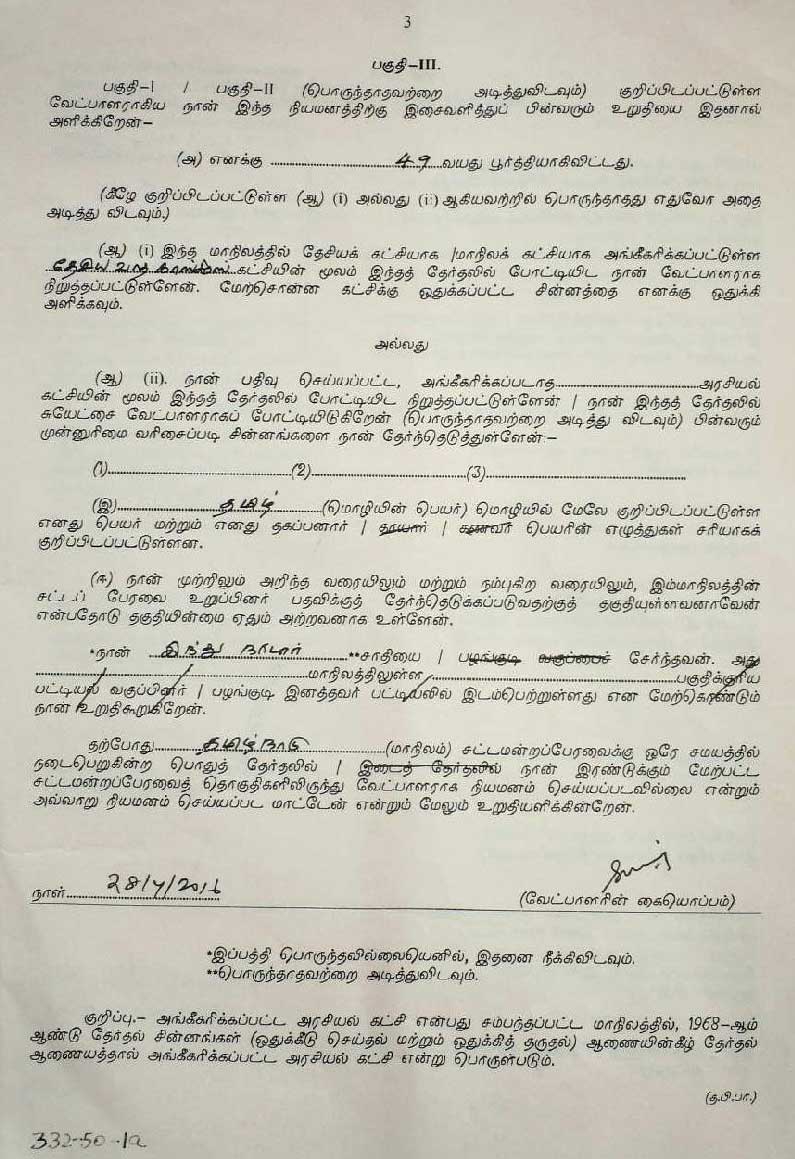 3
பகுதி–III.
பகுதி–I / பகுதி–II (பொருந்தாதவற்றை அடித்துவிடவும்) குறிப்பிடப்பட்டுள்ள
வேட்பாளராகிய நான் இந்த நியமனத்திற்கு இசைவளித்துப் பின்வரும் உறுதியை இதனால்
அளிக்கிறேன்–
(அ) எனக்கு ........................ 49 வயது பூர்த்தியாகிவிட்டது.
(கீழே குறிப்பிடப்பட்டுள்ள (ஆ) (i) அல்லது (ii) ஆகியவற்றில் பொருந்தாதது எதுவோ அதை
அடித்து விடவும்.)
(ஆ) (i) இந்த மாநிலத்தில் தேசியக் கட்சியாக /மாநிலக் கட்சியாக அங்கீகரிக்கப்பட்டுள்ள
தேசியவாத காங்கிரஸ் கட்சியின் மூலம் இந்தத் தேர்தலில் போட்டியிட நான் வேட்பாளராக
நிறுத்தப்பட்டுள்ளேன். மேற்சொன்ன கட்சிக்கு ஒதுக்கப்பட்ட சின்னத்தை எனக்கு ஒதுக்கி
அளிக்கவும்.
அல்லது
(ஆ) (ii). நான் பதிவு செய்யப்பட்ட, அங்கீகரிக்கப்படாத........................அரசியல்
கட்சியின் மூலம் இந்தத் தேர்தலில் போட்டியிட நிறுத்தப்பட்டுள்ளேன் / நான் இந்தத் தேர்தலில்
சுயேட்சை வேட்பாளராகப் போட்டியிடுகிறேன் (பொருந்தாதவற்றை அடித்து விடவும்) பின்வரும்
முன்னுரிமை வரிசைப்படி சின்னங்களை நான் தேர்ந்தெடுத்துள்ளேன்:–
(1)........................(2)........................(3)........................
(இ)............தமிழ்............(மொழியின் பெயர்) மொழியில் மேலே குறிப்பிடப்பட்டுள்ள
எனது பெயர் மற்றும் எனது தகப்பனார் / தாயார் / கணவர் பெயரின் எழுத்துகள் சரியாகக்
குறிப்பிடப்பட்டுள்ளன.
(ஈ) நான் முற்றிலும் அறிந்த வரையிலும் மற்றும் நம்புகிற வரையிலும், இம்மாநிலத்தின்
சட்டப் பேரவை உறுப்பினர் பதவிக்குத் தேர்ந்தெடுக்கப்படுவதற்குத் தகுதியுள்ளவனாவேன்
என்பதோடு தகுதியின்மை ஏதும் அற்றவனாக உள்ளேன்.
*நான் இந்து நாடார் **சாதியை / பழங்குடி வகுப்பைச் சேர்ந்தவன். அது
........................மாநிலத்திலுள்ள........................பகுதிக்குரிய
பட்டியல் வகுப்பினர் / பழங்குடி இனத்தவர் பட்டியலில் இடம்பெற்றுள்ளது என மேற்கொண்டும்
நான் உறுதிகூறுகிறேன்.
தற்போது............தமிழ்நாடு............(மாநிலம்) சட்டமன்றப்பேரவைக்கு ஒரே சமயத்தில்
நடைபெறுகின்ற பொதுத் தேர்தலில் / இடைத் தேர்தலில் நான் இரண்டுக்கும் மேற்பட்ட
சட்டமன்றப்பேரவைத் தொகுதிகளிலிருந்து வேட்பாளராக நியமனம் செய்யப்படவில்லை என்றும்
அவ்வாறு நியமனம் செய்யப்பட மாட்டேன் என்றும் மேலும் உறுதியளிக்கின்றேன்.
நாள் 28/4/2016
(வேட்பாளரின் கையொப்பம்)
*இப்பத்தி பொருந்தவில்லையெனில், இதனை நீக்கிவிடவும்.
**பொருந்தாதவற்றை அடித்துவிடவும்.
குறிப்பு.– அங்கீகரிக்கப்பட்ட அரசியல் கட்சி என்பது சம்பந்தப்பட்ட மாநிலத்தில், 1968–ஆம்
ஆண்டு தேர்தல் சின்னங்கள் (ஒதுக்கீடு செய்தல் மற்றும் ஒதுக்கித் தருதல்) ஆணையின்கீழ் தேர்தல்
ஆணையத்தால் அங்கீகரிக்கப்பட்ட அரசியல் கட்சி என்று பொருள்படும்.
(கு.பி.பா.)
332-50-1a